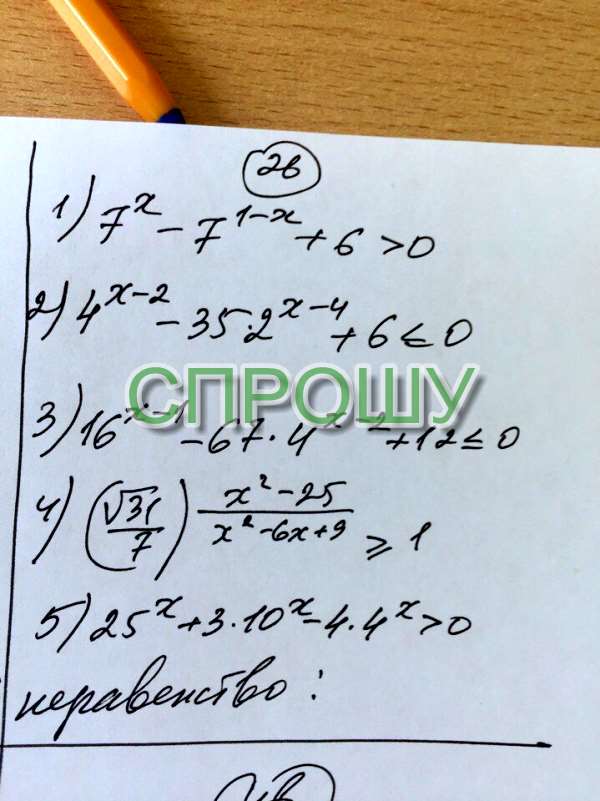 2в
1) 7^x - 7^{1-x} + 6 > 0
2) 4^{x-2} - 35·2^{x-4} + 6 ≤ 0
СПРОШУ
3) 16^{x-1} - 67·4^{x-2} + 12 ≤ 0
4) (√31/7)^{(x²-25)/(x²-6x+9)} ≥ 1
5) 25^x + 3·10^x - 4·4^x > 0
неравенство: